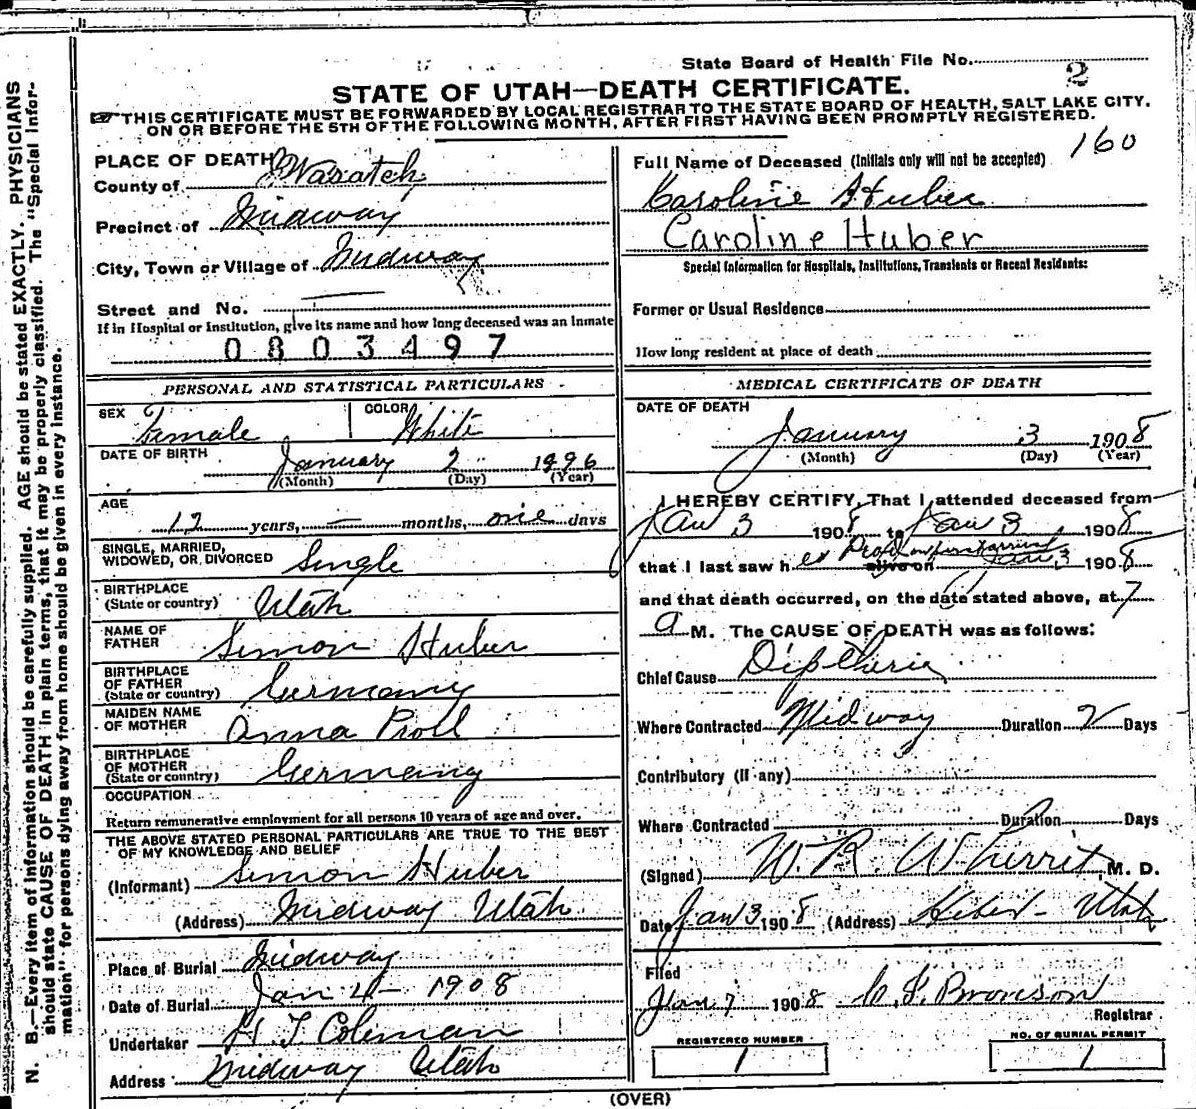 State Board of Health File No. 2
STATE OF UTAH—DEATH CERTIFICATE.
THIS CERTIFICATE MUST BE FORWARDED BY LOCAL REGISTRAR TO THE STATE BOARD OF HEALTH, SALT LAKE CITY.
ON OR BEFORE THE 5TH OF THE FOLLOWING MONTH, AFTER FIRST HAVING BEEN PROMPTLY REGISTERED.
160
PLACE OF DEATH
County of Wasatch
Precinct of Midway
City, Town or Village of Midway
Street and No.
If in Hospital or Institution, give its name and how long deceased was an inmate
0803497
Full Name of Deceased (Initials only will not be accepted)
Caroline Huber
Caroline Huber
Special Information for Hospitals, Institutions, Transients or Recent Residents:
Former or Usual Residence
How long resident at place of death
PERSONAL AND STATISTICAL PARTICULARS
SEX Female COLOR White
DATE OF BIRTH January 2 1896
(Month) (Day) (Year)
AGE 12 years, — months, one days
SINGLE, MARRIED,
WIDOWED, OR DIVORCED Single
BIRTHPLACE
(State or country) Utah
NAME OF
FATHER Simon Huber
BIRTHPLACE
OF FATHER
(State or country) Germany
MAIDEN NAME
OF MOTHER Anna Proll
BIRTHPLACE
OF MOTHER
(State or country) Germany
OCCUPATION
Return remunerative employment for all persons 10 years of age and over.
THE ABOVE STATED PERSONAL PARTICULARS ARE TRUE TO THE BEST
OF MY KNOWLEDGE AND BELIEF
(Informant) Simon Huber
(Address) Midway Utah
Place of Burial Midway
Date of Burial Jan 4- 1908
Undertaker H T Coleman
Address Midway Utah
MEDICAL CERTIFICATE OF DEATH
DATE OF DEATH
January 3 1908
(Month) (Day) (Year)
I HEREBY CERTIFY, That I attended deceased from
Jan 3 1908 to Jan 3 1908
that I last saw h er alive on Jan 3 1908
and that death occurred, on the date stated above, at 7
a M. The CAUSE OF DEATH was as follows:
Chief Cause Diptheria
Where Contracted Midway Duration 2 Days
Contributory (if any)
Where Contracted Duration Days
(Signed) W. R. Wherrit, M. D.
Date Jan 3 1908 (Address) Heber - Utah
Filed
Jan 7 1908 Bronson
Registrar
REGISTERED NUMBER
1
NO. OF BURIAL PERMIT
1
(OVER)
N. B.—Every item of information should be carefully supplied. AGE should be stated EXACTLY. PHYSICIANS
should state CAUSE OF DEATH in plain terms, that it may be properly classified. The "Special Infor-
mation" for persons dying away from home should be given in every instance.